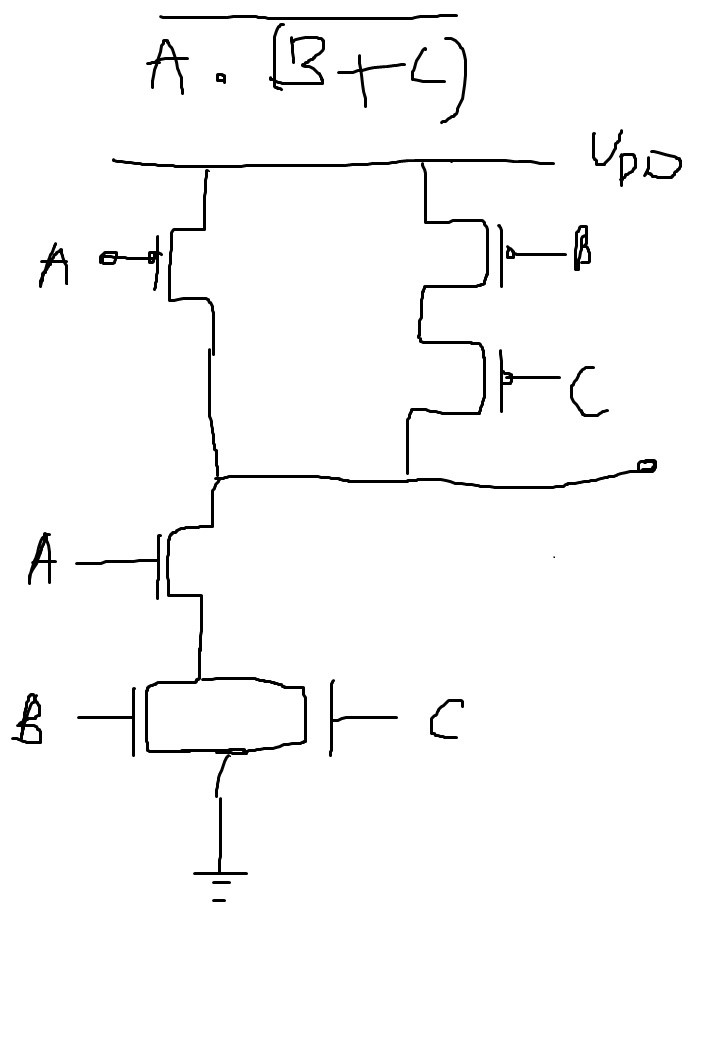 A . (B+C)
VDD
A
B
C
A
B
C